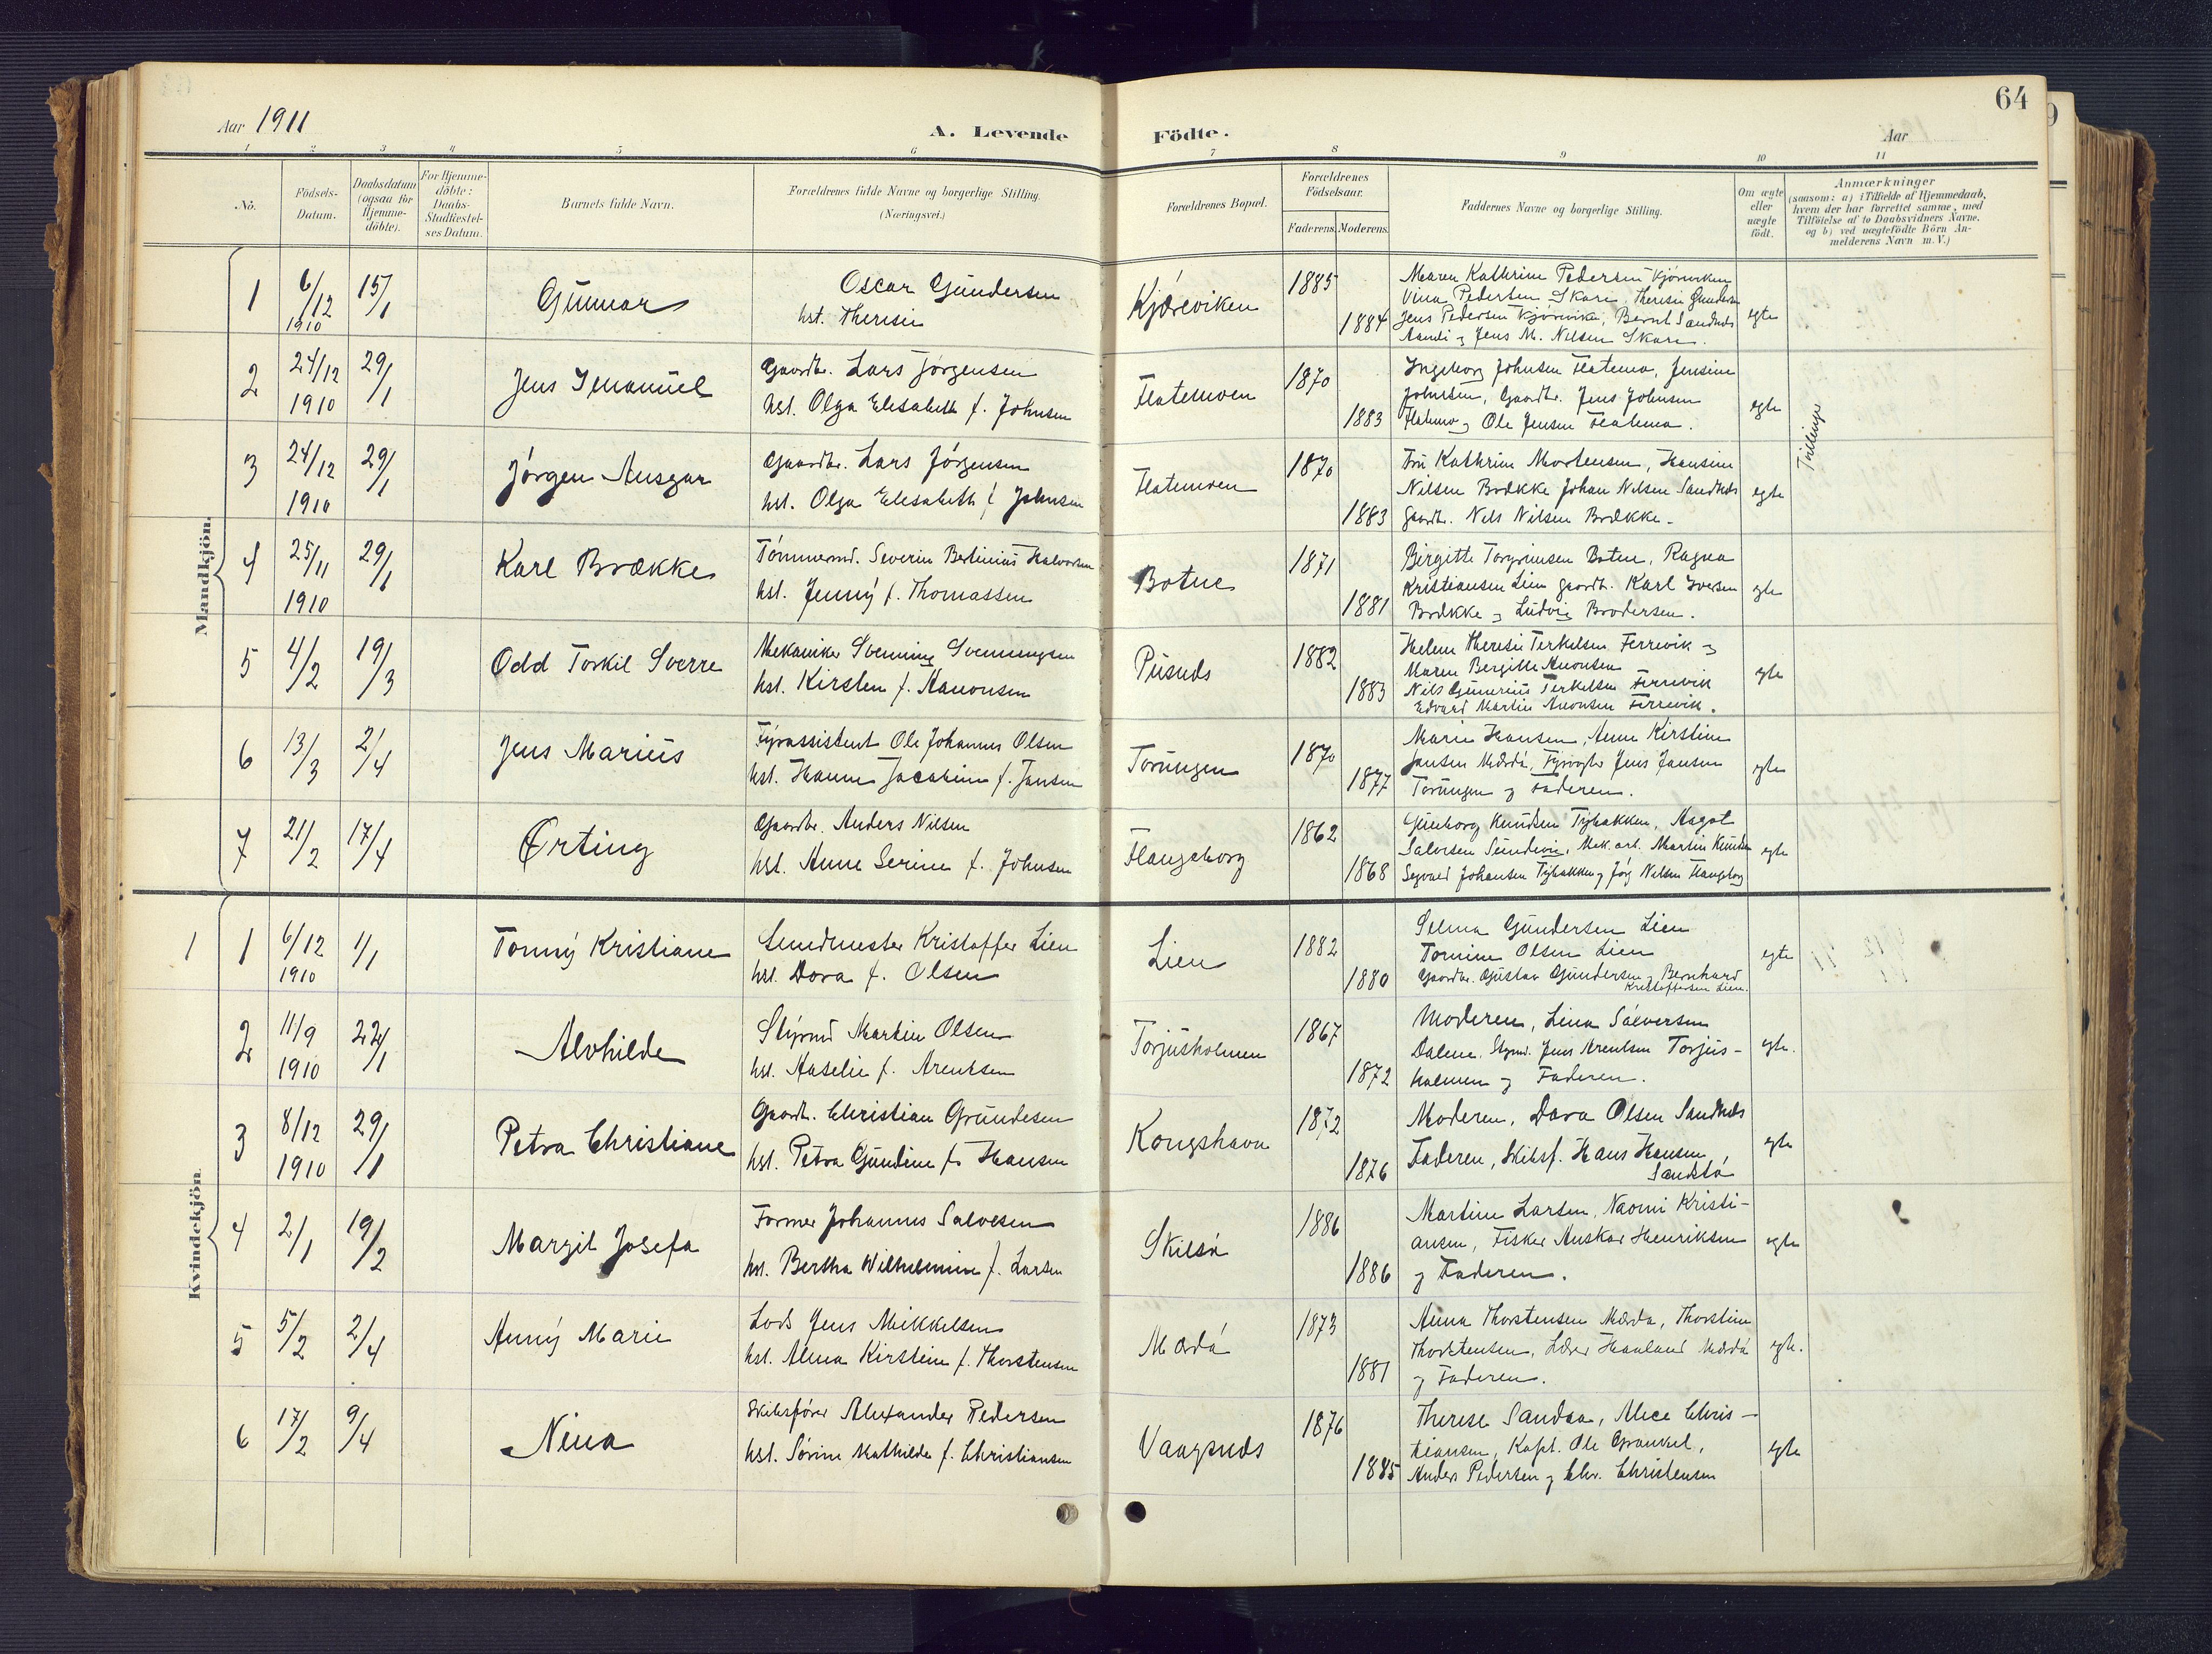 64
Aar 1911
A. Levende Födte.
Aar
1 2 3 4 5 6 7 8 9 10 11
No.
Födsels-Datum.
Daabsdatum (ogsaa for Hjemme-döbte).
For Hjemme-döbte: Daabs-Stadfestel-ses Datum.
Barnets fulde Navn.
Forældrenes fulde Navne og borgerlige Stilling. (Næringsvei.)
Forældrenes Bopæl.
Forældrenes Födselsaar.
Faderens. Moderens.
Faddernes Navne og borgerlige Stilling.
Om ægte eller uægte födt.
Anmærkninger
(saasom: a) i Tilfælde af Hjemmedaab,
hvem der har forrettet samme, med
Tilföielse af to Daabsvidners Navne.
og b) ved uægtefödte Börn An-
melderens Navn m. V.)
Mandkjön.
1 6/12 1910 15/1 Gunnar
Oscar Gundersen
hst. Theresie
Kjøreviken 1885 1884
Maren Kathrine Pedersen Kjøreviken
Vina Pedersen Skare, Theresie Gunders
Jens Pedersen Kjørevik, Bernt Sandnes
og Jens M. Nilsen Skare.
egte
2 24/12 1910 29/1 Jens Imanuel
Gaardbr. Lars Jørgensen
hst. Olga Elisabeth f. Johnsen
Flatemoen 1870 1883
Ingeborg Johnsen Flatemo, Jensine
Johnsen, Gaardbr. Jens Johnsen
Flatemo og Ole Jensen Flatemo.
egte
Tvillinger
3 24/12 1910 29/1 Jørgen Ansgar
Gaardbr. Lars Jørgensen
hst. Olga Elisabeth f. Johnsen
Flatemoen 1870 1883
Fru Kathrine Mortensen, Hansine
Nilsen Brække Johan Nilsen Sandnes
Gaardbr. Nils Nilsen Brække.
egte
4 25/11 1910 29/1 Karl Brække
Tømmermd. Severin Bertinius Halvorsen
hst. Jenny f. Thomassen
Botne 1871 1881
Birgitte Torgrimsen Botne, Ragna
Kristiansen Lien gaardb. Karl Iversen
Brække og Ludvig Brodersen.
egte
5 4/2 19/3 Odd Torkil Sverre
Mekaniker Svenning Svenningsen
hst. Kirsten f. Aanonsen
Pusnes 1882 1883
Helene Theresie Terkelsen Ferrevik og
Maren Bergitte Anonsen
Nils Gunerius Terkelsen Ferrevik
Edvard Martin Anonsen Ferrevik.
egte
6 13/3 2/4 Jens Marius
Fyrassistent Ole Johannes Olsen
hst. Hanne Jacobine f. Jansen
Torungen 1870 1877
Marie Hansen, Anne Kirstine
Jansen Mærdø, Fyrvogter Jens Jansen
Torungen og Faderen.
egte
7 21/2 17/4 Ørting
Gaardbr. Anders Nilsen
hst. Anne Serine f. Johnsen
Flangeborg 1862 1868
Gunborg Knudsen Tybakken, Aagot
Salvesen Sundvig, Mek. arb. Martin Knudsen
Sigvald Johansen Tybakken og Jørg Nilsen Flangeborg
egte
Kvindekjön
1 1 6/12 1910 1/1 Tonny Kristiane
Smedmester Kristoffer Lien
hst. Dora f. Olsen
Lien 1882 1880
Selma Gundersen Lien
Tomine Olsen Lien
Gaardbr. Gustav Gundersen og Bernhard
Kristoffersen Lien.
egte
2 11/9 1910 22/1 Alvhilde
Styrmd Martin Olsen
hst. Aaselie f. Arentsen
Torjusholmen 1867 1872
Moderen, Lina Salvesen
Dalene, Styrmd. Jens Arentsen Torjus-
holmen og Faderen.
egte.
3 8/12 1910 29/1 Petra Christiane
Gaardb. Christian Grundesen
hst. Petra Gundine f. Hansen
Kongshavn 1872 1876
Moderen, Dora Olsen Sandnes
Faderen, Skibsf. Hans Hansen
Sandstø
egte
4 2/1 19/2 Margit Josefa
Former Johannes Salvesen
hst. Bertha Wilhelmine f. Larsen
Skilsø 1886 1886
Martine Larsen, Naomi Kristi-
ansen, Fisker Anskar Henriksen
og Faderen.
egte
5 5/2 2/4 Anny Marie
Lods Jens Mikkelsen
hst. Alma Kirstine f. Thorstensen
Mærdø 1873 1881
Anna Thorstensen Mærdø, Thorstein
Thorstensen, Lærer Hauland Mærdø
og Faderen.
egte.
6 17/2 9/4 Nina
Skibsfører Alexander Pedersen
hst. Sørine Mathilde f. Christiansen
Vaagsnes 1876 1885
Therese Sandaa, Alice Chris-
tiansen, Kapt. Ole Grankel,
Anders Pedersen og Chr. Christensen
egte